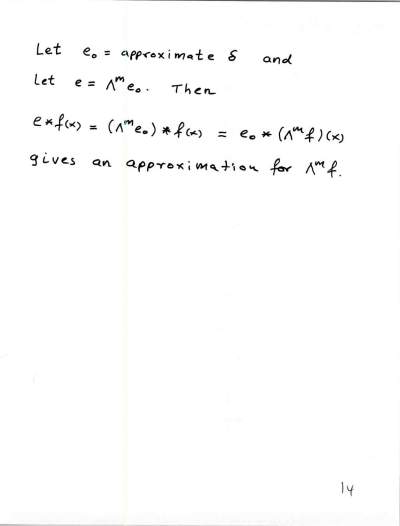 Let e₀ = approximate δ and
Let e = Λᵐe₀. Then
e*f(x) = (Λᵐe₀)*f(x) = e₀*(Λᵐf)(x)
gives an approximation for Λᵐf.
14